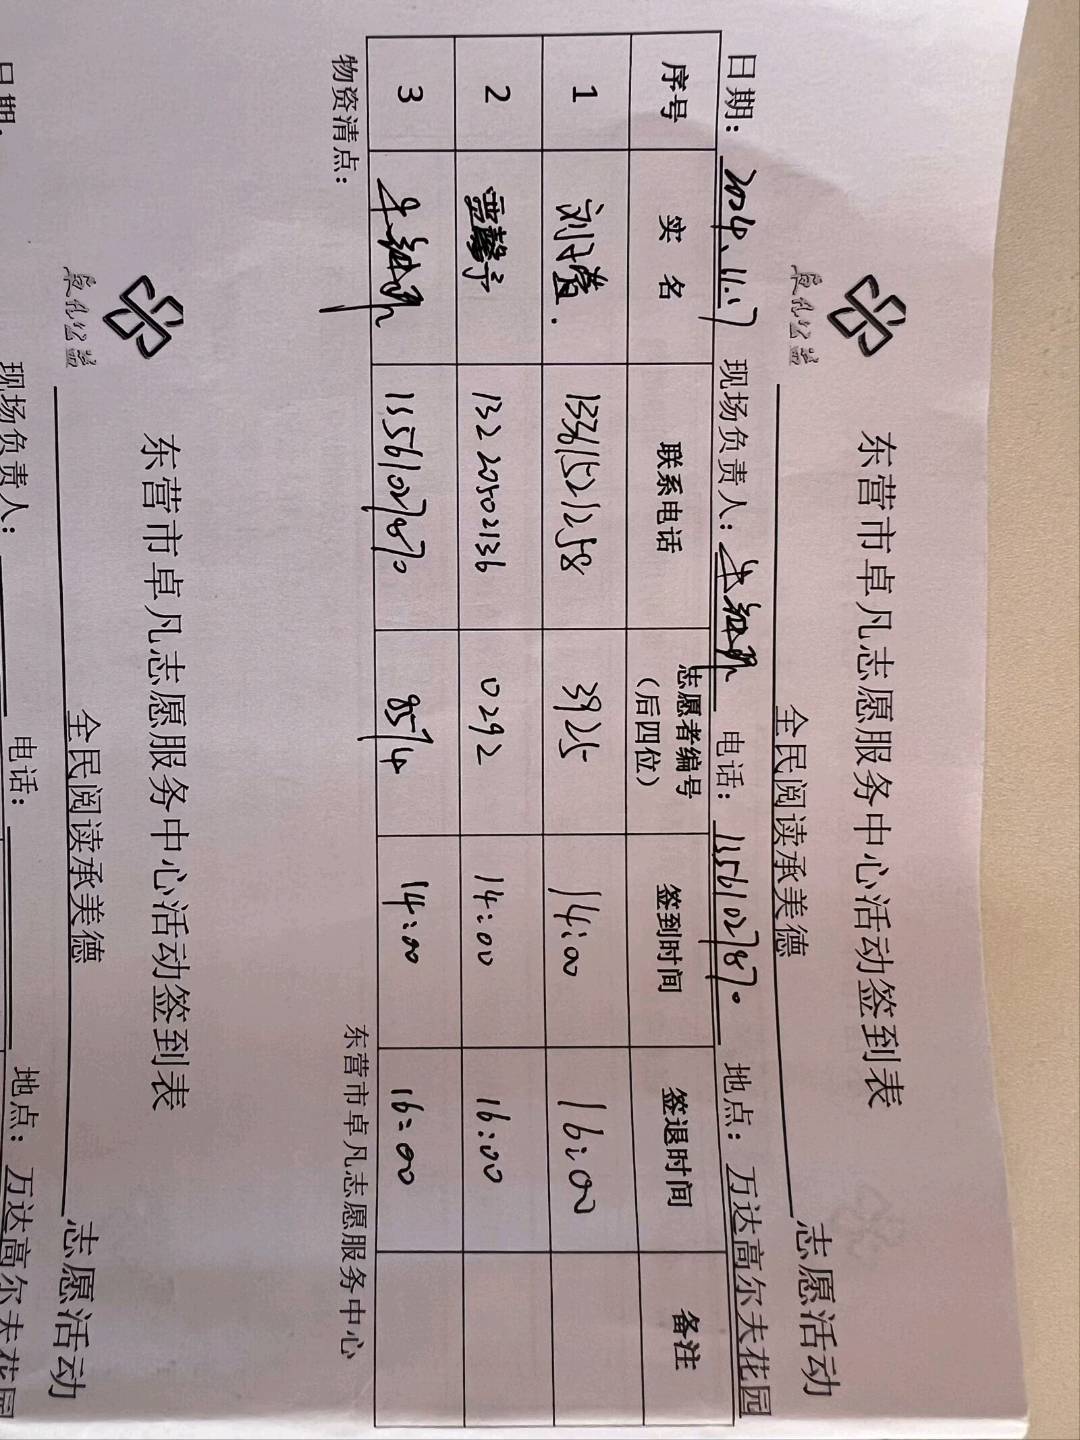 卓凡公益
东营市卓凡志愿服务中心活动签到表
全民阅读承美德 志愿活动
日期: 2024.11.17 现场负责人: 电话: 15561027870 地点: 万达高尔夫花园
序号 实名 联系电话 志愿者编号(后四位) 签到时间 签退时间 备注
1 刘子萱. 13361521258 3925 14:00 16:00
2 贾馨予 13220502136 0292 14:00 16:00
3 15561027870 8574 14:00 16:00
物资清点: 东营市卓凡志愿服务中心
卓凡公益
东营市卓凡志愿服务中心活动签到表
全民阅读承美德 志愿活动
日期: 现场负责人: 电话: 地点: 万达高尔夫花园